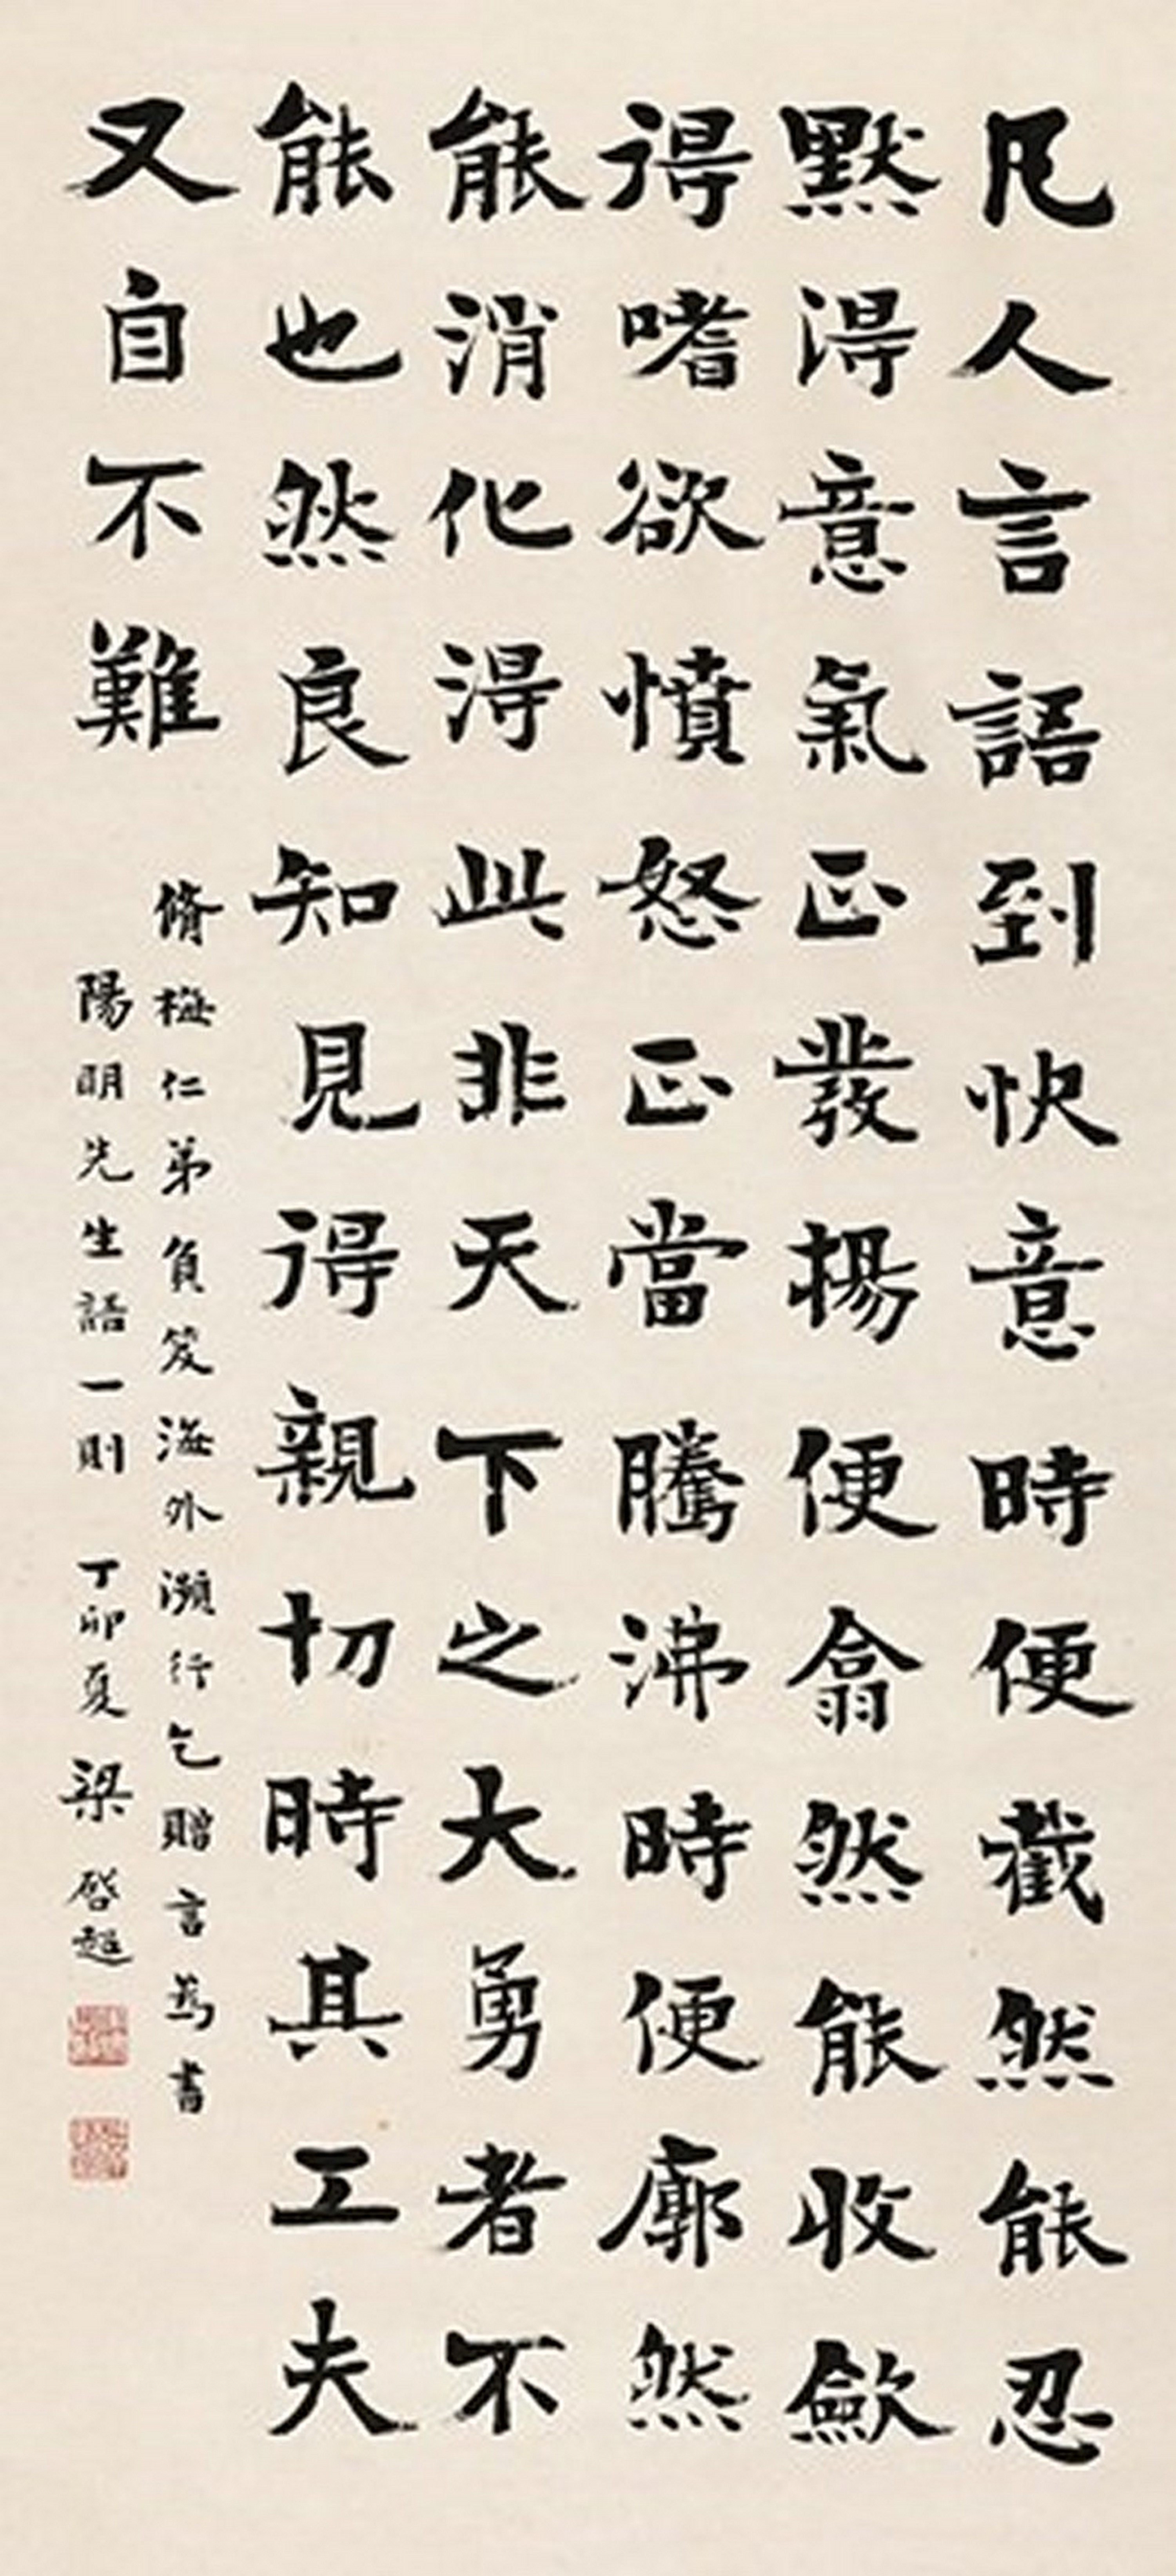 凡人言語到快意時便截然能忍
默得意氣正發揚便翕然能收歛
得嗜欲憤怒正當騰沸時便廓然
能消化得此非天下之大勇者不
能也然良知見得親切時其工夫
又自不難
脩梅仁弟負笈海外瀕行乞贈言為書
陽明先生語一則 丁卯夏 梁啓超